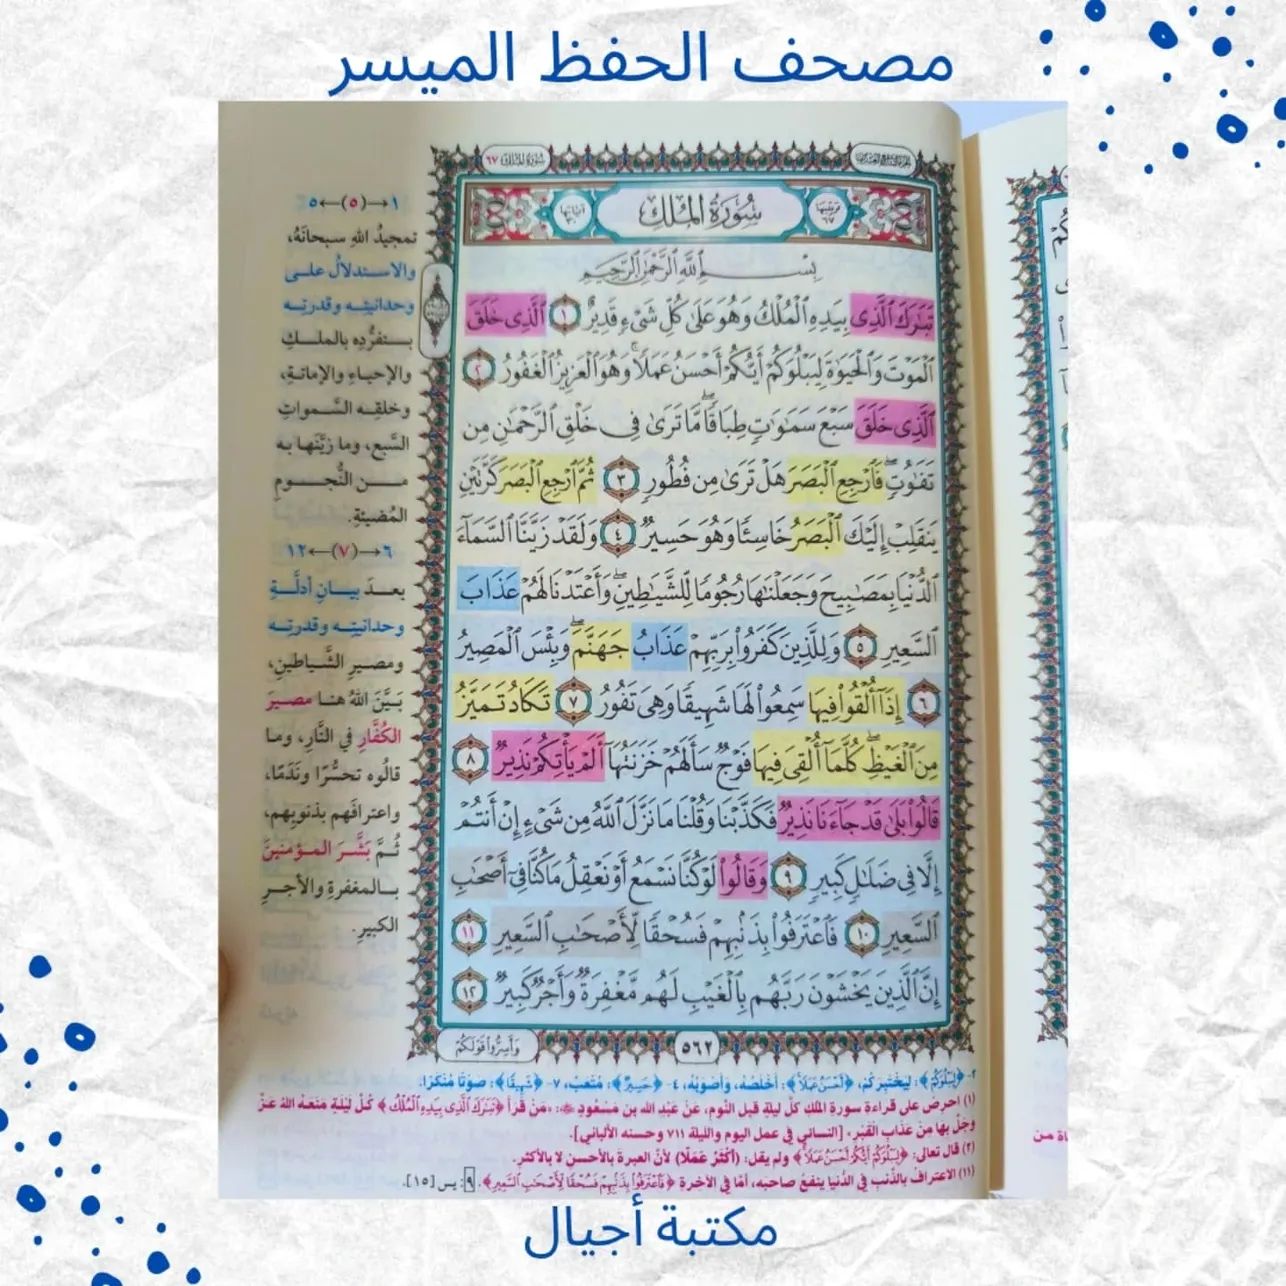 مصحف الحفظ الميسر
سُورَةُ المُلْكِ ٦٧
سُورَةُ المُلْكِ
ترتيبها ٦٧
آياتها ٣٠
بِسْمِ اللَّهِ الرَّحْمَٰنِ الرَّحِيمِ
تَبَٰرَكَ ٱلَّذِى بِيَدِهِ ٱلْمُلْكُ وَهُوَ عَلَىٰ كُلِّ شَىْءٍ قَدِيرٌ ١ ٱلَّذِى خَلَقَ
ٱلْمَوْتَ وَٱلْحَيَوٰةَ لِيَبْلُوَكُمْ أَيُّكُمْ أَحْسَنُ عَمَلًا ۚ وَهُوَ ٱلْعَزِيزُ ٱلْغَفُورُ ٢
ٱلَّذِى خَلَقَ سَبْعَ سَمَٰوَٰتٍ طِبَاقًا ۖ مَّا تَرَىٰ فِى خَلْقِ ٱلرَّحْمَٰنِ مِن
تَفَٰوُتٍ ۖ فَٱرْجِعِ ٱلْبَصَرَ هَلْ تَرَىٰ مِن فُطُورٍ ٣ ثُمَّ ٱرْجِعِ ٱلْبَصَرَ كَرَّتَيْنِ
يَنقَلِبْ إِلَيْكَ ٱلْبَصَرُ خَاسِئًا وَهُوَ حَسِيرٌ ٤ وَلَقَدْ زَيَّنَّا ٱلسَّمَآءَ
ٱلدُّنْيَا بِمَصَٰبِيحَ وَجَعَلْنَٰهَا رُجُومًا لِّلشَّيَٰطِينِ ۖ وَأَعْتَدْنَا لَهُمْ عَذَابَ
ٱلسَّعِيرِ ٥ وَلِلَّذِينَ كَفَرُوا۟ بِرَبِّهِمْ عَذَابُ جَهَنَّمَ ۖ وَبِئْسَ ٱلْمَصِيرُ
٦ إِذَآ أُلْقُوا۟ فِيهَا سَمِعُوا۟ لَهَا شَهِيقًا وَهِىَ تَفُورُ ٧ تَكَادُ تَمَيَّزُ
مِنَ ٱلْغَيْظِ ۖ كُلَّمَآ أُلْقِىَ فِيهَا فَوْجٌ سَأَلَهُمْ خَزَنَتُهَآ أَلَمْ يَأْتِكُمْ نَذِيرٌ ٨
قَالُوا۟ بَلَىٰ قَدْ جَآءَنَا نَذِيرٌ فَكَذَّبْنَا وَقُلْنَا مَا نَزَّلَ ٱللَّهُ مِن شَىْءٍ إِنْ أَنتُمْ
إِلَّا فِى ضَلَٰلٍ كَبِيرٍ ٩ وَقَالُوا۟ لَوْ كُنَّا نَسْمَعُ أَوْ نَعْقِلُ مَا كُنَّا فِىٓ أَصْحَٰبِ
ٱلسَّعِيرِ ١٠ فَٱعْتَرَفُوا۟ بِذَنۢبِهِمْ فَسُحْقًا لِّأَصْحَٰبِ ٱلسَّعِيرِ ١١
إِنَّ ٱلَّذِينَ يَخْشَوْنَ رَبَّهُم بِٱلْغَيْبِ لَهُم مَّغْفِرَةٌ وَأَجْرٌ كَبِيرٌ ١٢
٥٦٢
وَأَسِرُّوا۟ قَوْلَكُمْ
١←(٥)←٥
تمجيدُ اللهِ سبحانَهُ،
والاستدلالُ على
وحدانيتِه وقدرتِه
بتفرُّدِه بالملكِ
والإحياءِ والإماتةِ،
وخلقِه السَّمواتِ
السَّبعِ، وما زيَّنَها به
من النُّجومِ
المُضيئةِ.
٦←(٧)←١٢
بعدَ بيانِ أدلَّةِ
وحدانيتِه وقدرتِه
ومصيرِ الشَّياطينِ،
بَيَّنَ اللهُ هنا مصيرَ
الكُفَّارِ في النَّارِ، وما
قالُوه تحسُّرًا ونَدَمًا،
واعترافَهم بذنوبِهم،
ثُمَّ بَشَّرَ المؤمنينَ
بالمغفرةِ والأجرِ
الكبيرِ.
٢- ﴿لِيَبْلُوَكُمْ﴾: لِيَخْتَبِرَكُم، ﴿أَحْسَنُ عَمَلًا﴾: أَخْلَصُهُ، وَأَصْوَبُهُ، ٤- ﴿حَسِيرٌ﴾: مُتْعَبٌ، ٧- ﴿شَهِيقًا﴾: صَوْتًا مُنْكَرًا.
(١) احرص على قراءة سورة الملك كلَّ ليلةٍ قبل النَّوم، عَنْ عَبْدِ الله بن مَسْعُودٍ ﷺ: «مَنْ قَرَأَ ﴿تَبَٰرَكَ ٱلَّذِى بِيَدِهِ ٱلْمُلْكُ﴾ كُلَّ لَيْلَةٍ مَنَعَهُ اللهُ عَزَّ
وَجَلَّ بها مِنْ عَذَابِ القَبْرِ» [النسائي في عمل اليوم والليلة ٧١١ وحسنه الألباني].
(٢) قال تعالى: ﴿لِيَبْلُوَكُمْ أَيُّكُمْ أَحْسَنُ عَمَلًا﴾ ولم يقل: (أَكْثَرُ عَمَلًا) لأنَّ العبرةَ بالأحسنِ لا بالأكثرِ.
(١١) الاعتراف بالذَّنب في الدُّنيا ينفع صاحبه، أمَّا في الآخرة ﴿فَٱعْتَرَفُوا۟ بِذَنۢبِهِمْ فَسُحْقًا لِّأَصْحَٰبِ ٱلسَّعِيرِ﴾. ٩: يس [١٥].
مكتبة أجيال